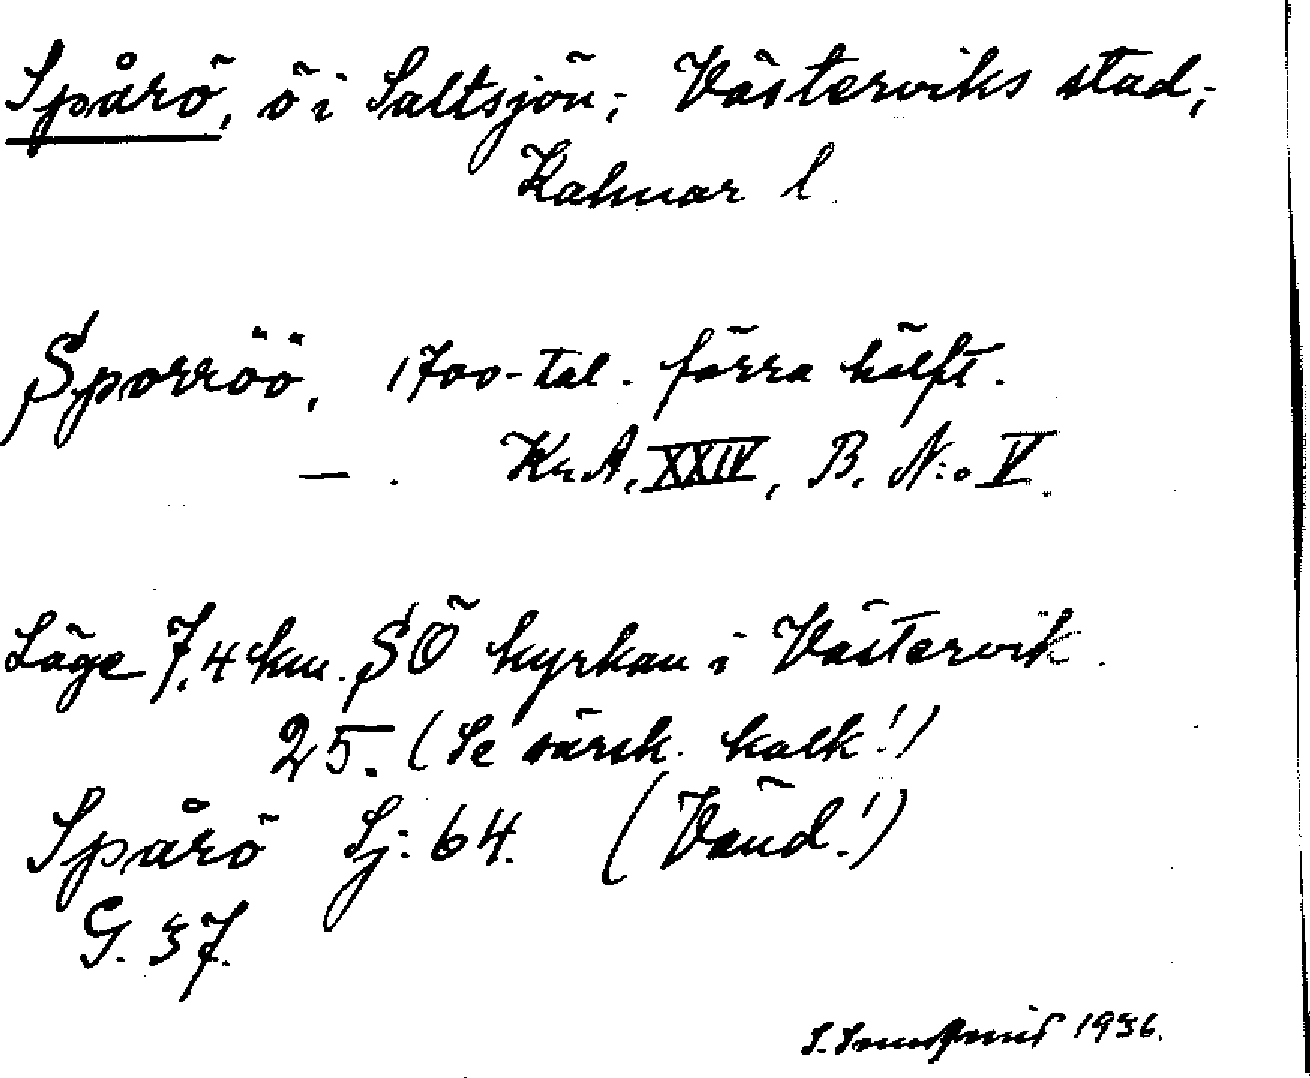 Spårö, ö i Saltsjön; Västerviks stad;
Kalmar l.
Sporröö, 1700-tal. förra hälft.
—. Kr. A. XXIV, B. N:o V.
Läge 7,4 km. SÖ kyrkan i Västervik.
25. (Se särsk. kalk!)
Spårö Sj: 64. (Vänd!)
G. 37.
S. 1936.